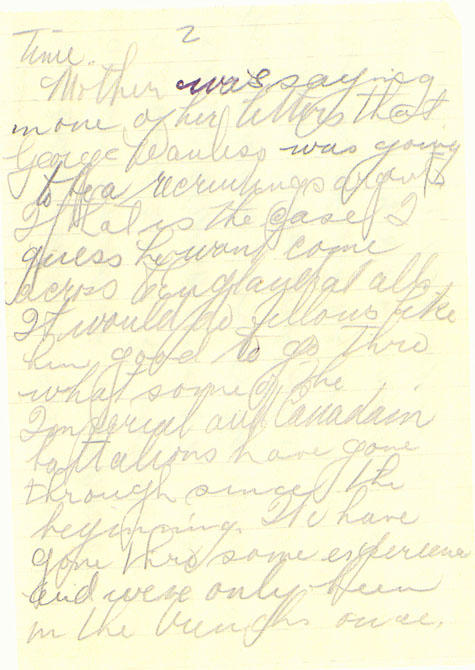 2
Time.
Mother was saying
in one of her letters that
George Wanless was going
to be a recruiting sargant
If that is the case I
guess he wont come
across to England at all.
It would do fellows like
him good to go thro
what some of the
Imperial and Canadain
battalions have gone
through since the
beginning. We have
gone thro some experience
and weve only been
in the trenchs once.